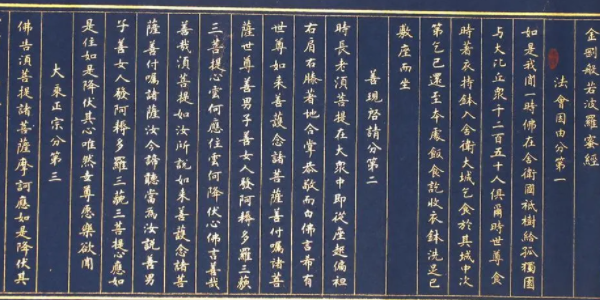 金剛般若波羅蜜經
法會因由分第一
如是我聞一時佛在舍衛國祇樹給孤獨園
與大比丘眾千二百五十人俱爾時世尊食
時著衣持鉢入舍衛大城乞食於其城中次
第乞已還至本處飯食訖收衣鉢洗足已
敷座而坐
善現啓請分第二
時長老須菩提在大眾中即從座起偏袒
右肩右膝著地合掌恭敬而白佛言希有
世尊如來善護念諸菩薩善付囑諸菩
薩世尊善男子善女人發阿耨多羅三藐
三菩提心雲何應住雲何降伏心佛言善哉
善哉須菩提如汝所說如來善護念諸菩
薩善付囑諸薩汝今諦聽當為汝說善男
子善女人發阿耨多羅三藐三菩提心應如
是住如是降伏其心唯然世尊愿樂欲聞
大乘正宗分第三
佛告須菩提諸菩薩摩訶應如是降伏其